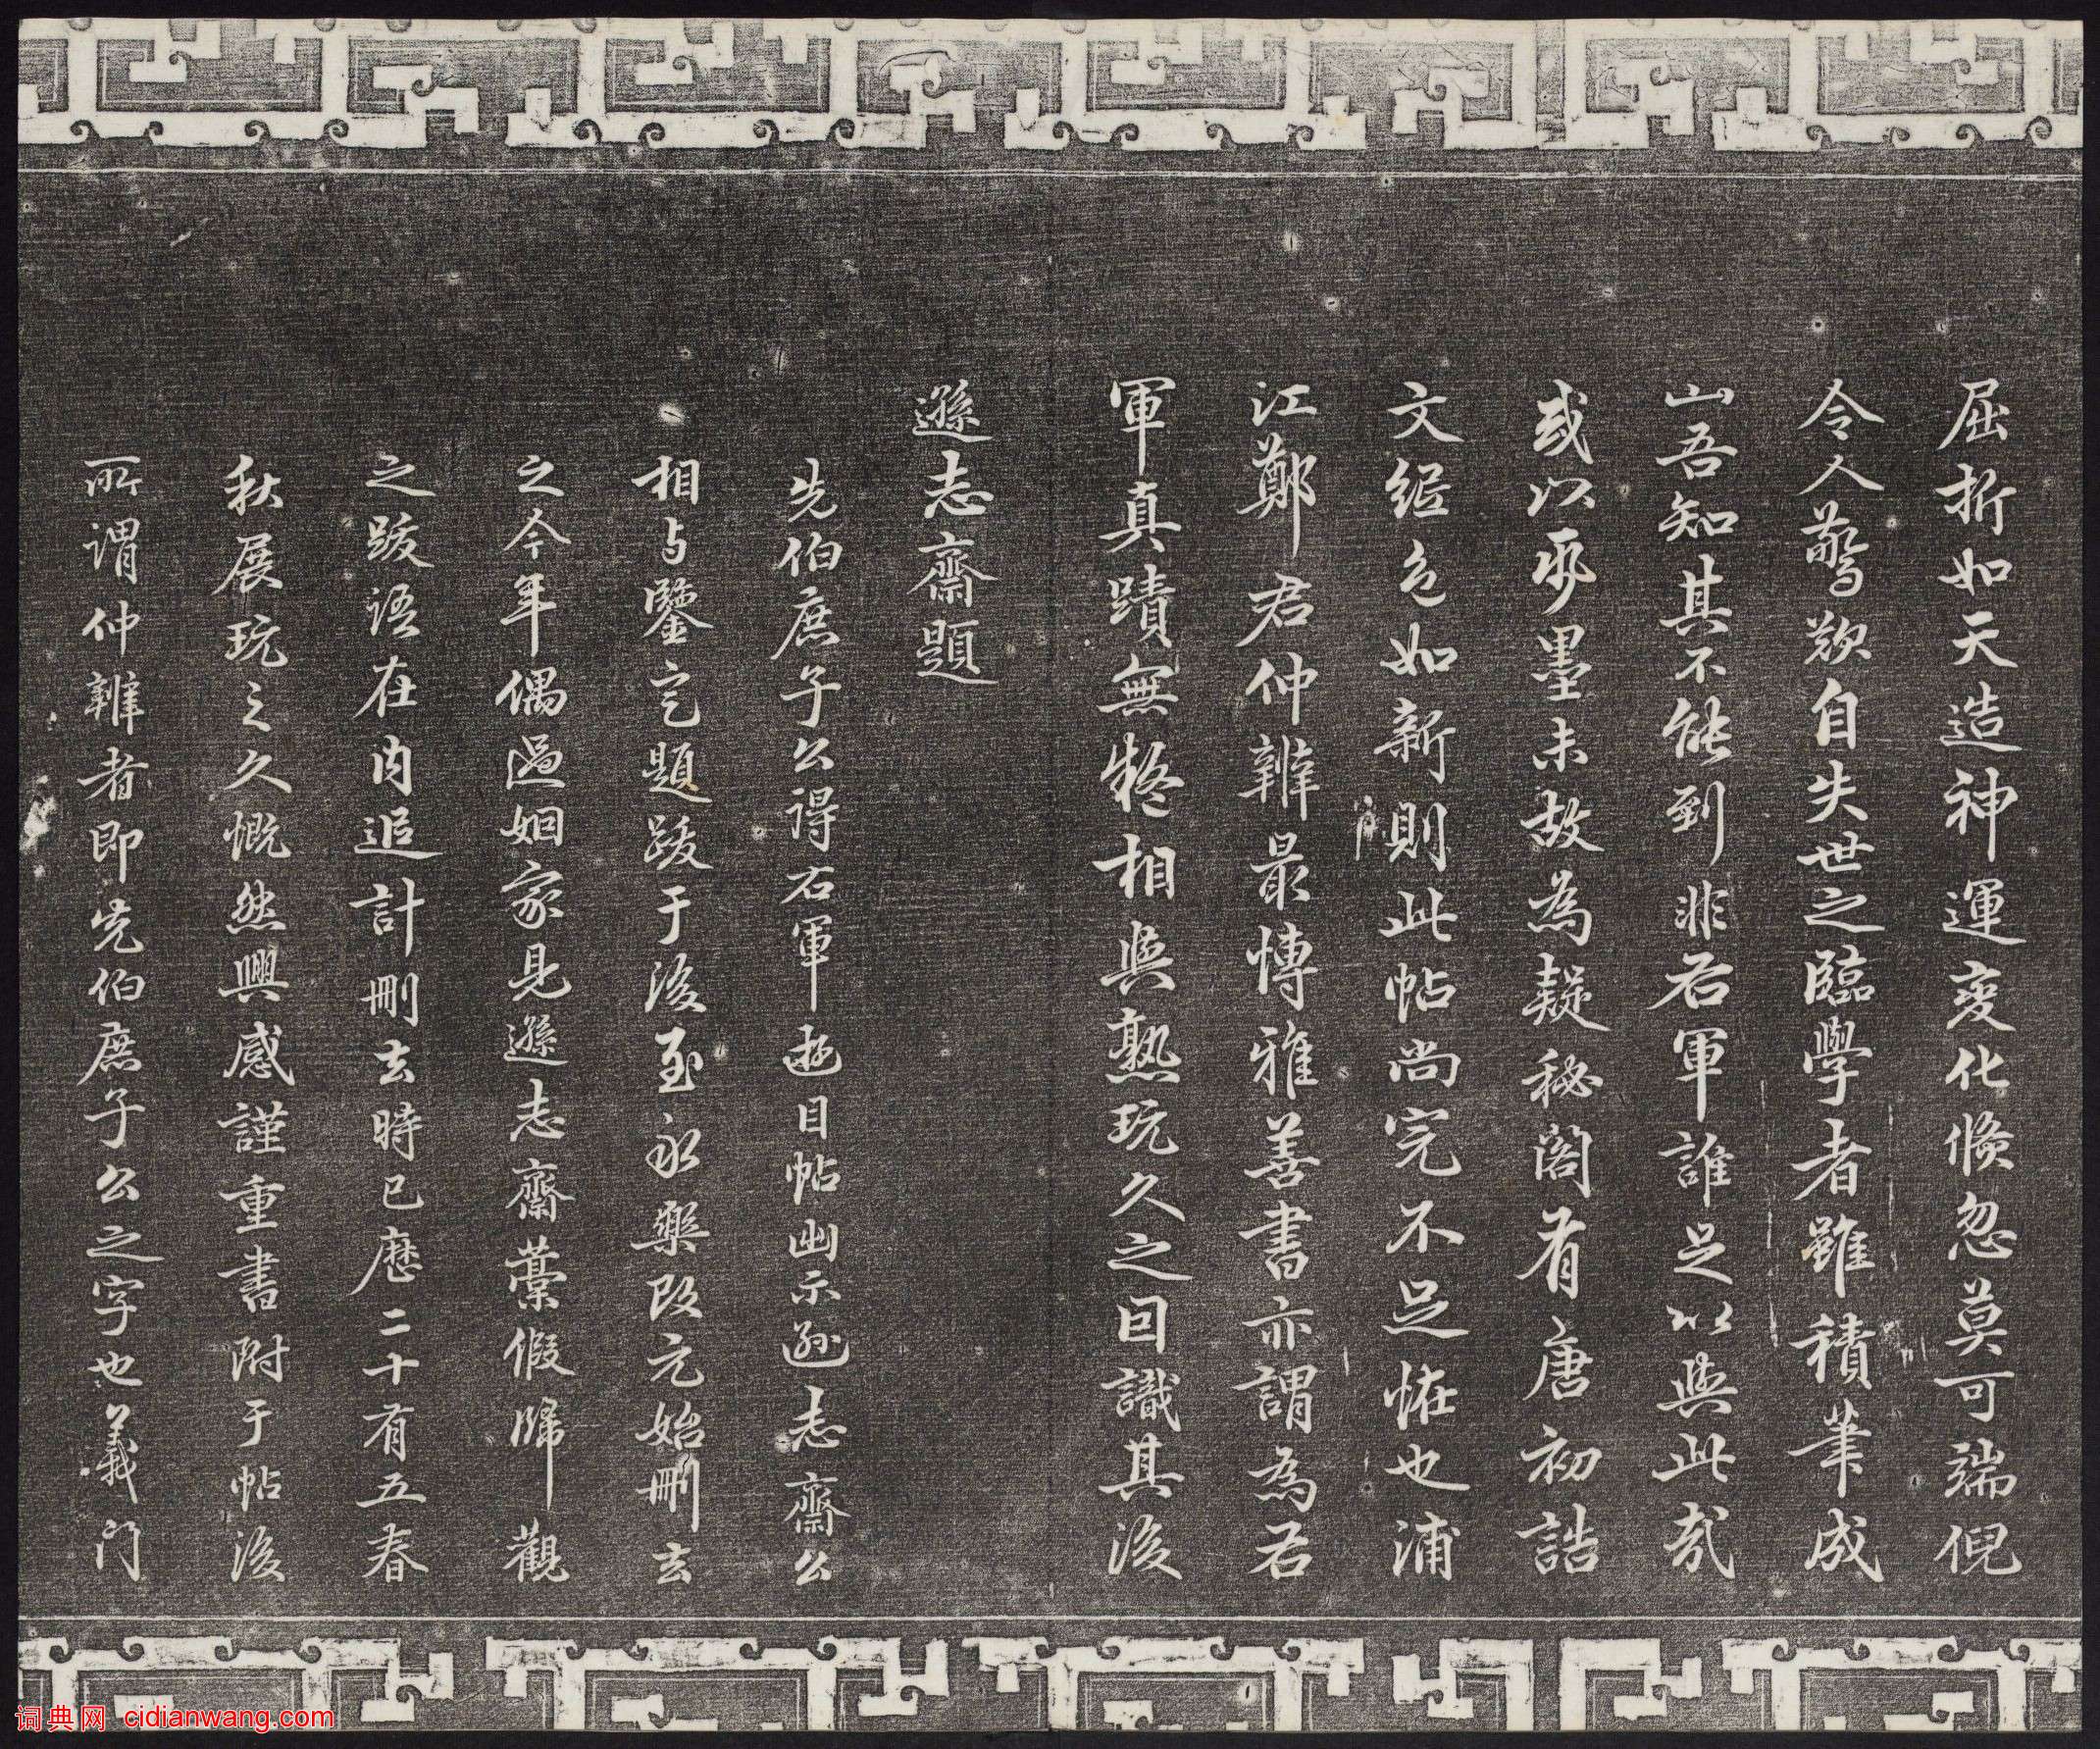 屈折如天造神運變化倏忽莫可端倪
令人驚歎自失世之臨學者雖積筆成
山吾知其不能到非右軍誰足以與此哉
或以氒墨未故為疑秘閣有唐初誥
文紙色如新則此帖尚完不足恠也浦
江鄭君仲辨最博雅善書亦謂為右
軍真蹟無疑相與熟玩久之回識其後
遜志齋題
先伯庶子公得右軍遊目帖出示遜志齋公
相与鑒定題跋于後至永樂改元始刪去
之今年偶過姻家見遜志齋藁假歸觀
之跋語在内追計刪去時已歷二十有五春
秋展玩之久慨然興感謹重書附于帖後
所謂仲辨者即先伯庶子公之字也義門
词典网 cidianwang.com